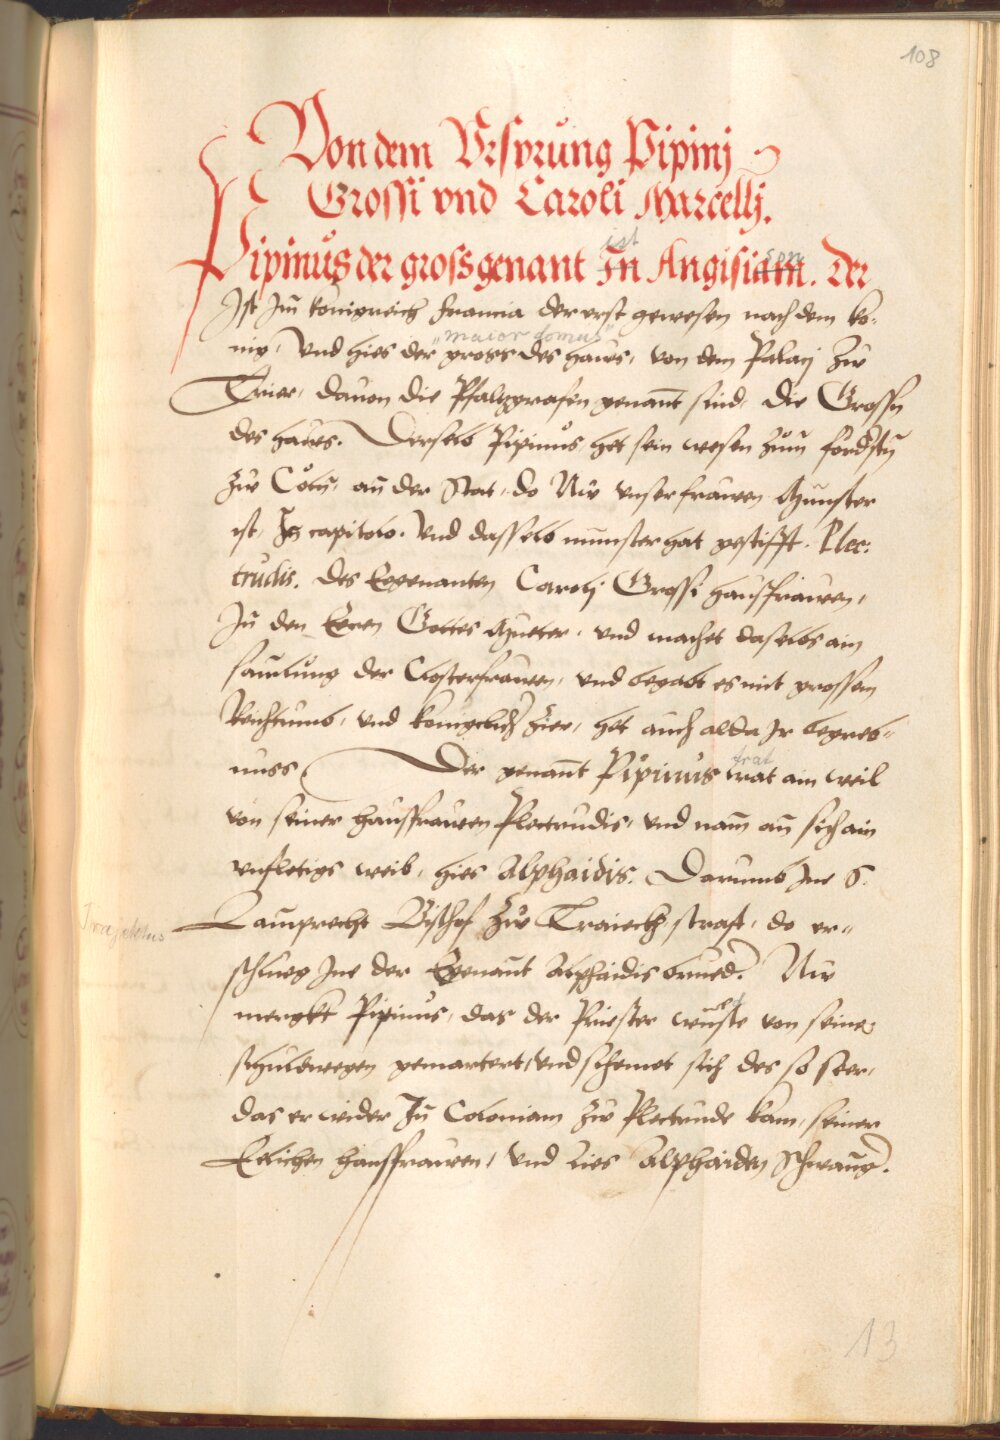 108
Von dem Vrsprung Pipinj
Grossi vnd Caroli Marcellj.
ist son
Pipinus der gross genant In Angisiam. Der
Ist Im konigreich Francia der erst gewesen nach dem ko-
„maior domus"
nig, Vnd hies der gross des haws, von dem Palatj Zw
Trier, dauon die Pfaltzgrafen genant sind, die Grossn
des haws. Derselb Pipinus het sein wesen Zum fordstn
Zw Cöln, an der Stat, do Nw vnser frawen Munster
ist, In capitolo. Vnd dasselb munster hat gestifft. Plec:
trudis. des Egenanten Carolj Grossi hausfrawen,
In den Eeren Gottes Mueter, vnd machet daselbs ain
samlung der Closterfrawen, vnd begabt es mit grossem
Reichtumb, vnd koniglich Zier, het auch alda Jr begreb-
nuss Der genant Pipinus trat ain weil
trat
von seiner hausfrawen Plectrudis, vnd nam an sich ain
vnfletigs weib, hies Alphaidis. Darumb Jne S.
Trajectus
Lamprecht Bischof Zw Traiecth straft, do er-
schlueg Jne der Egenant Alphaidis brueder. Nw
mergkt Pipinus, das der Priester wurd von seiner
schuldwegen gemartert, Vnd schemet sich des so seer,
das er wider In Coloniam Zw Plectrude kam, seiner
Eelichen hausfrawen, Vnd Lies Alphaiden Schwanger.
13